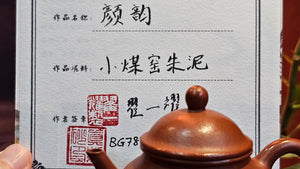 作品名称: 颜韵
作品泥料: 小煤窑朱泥
作者签章
BG78